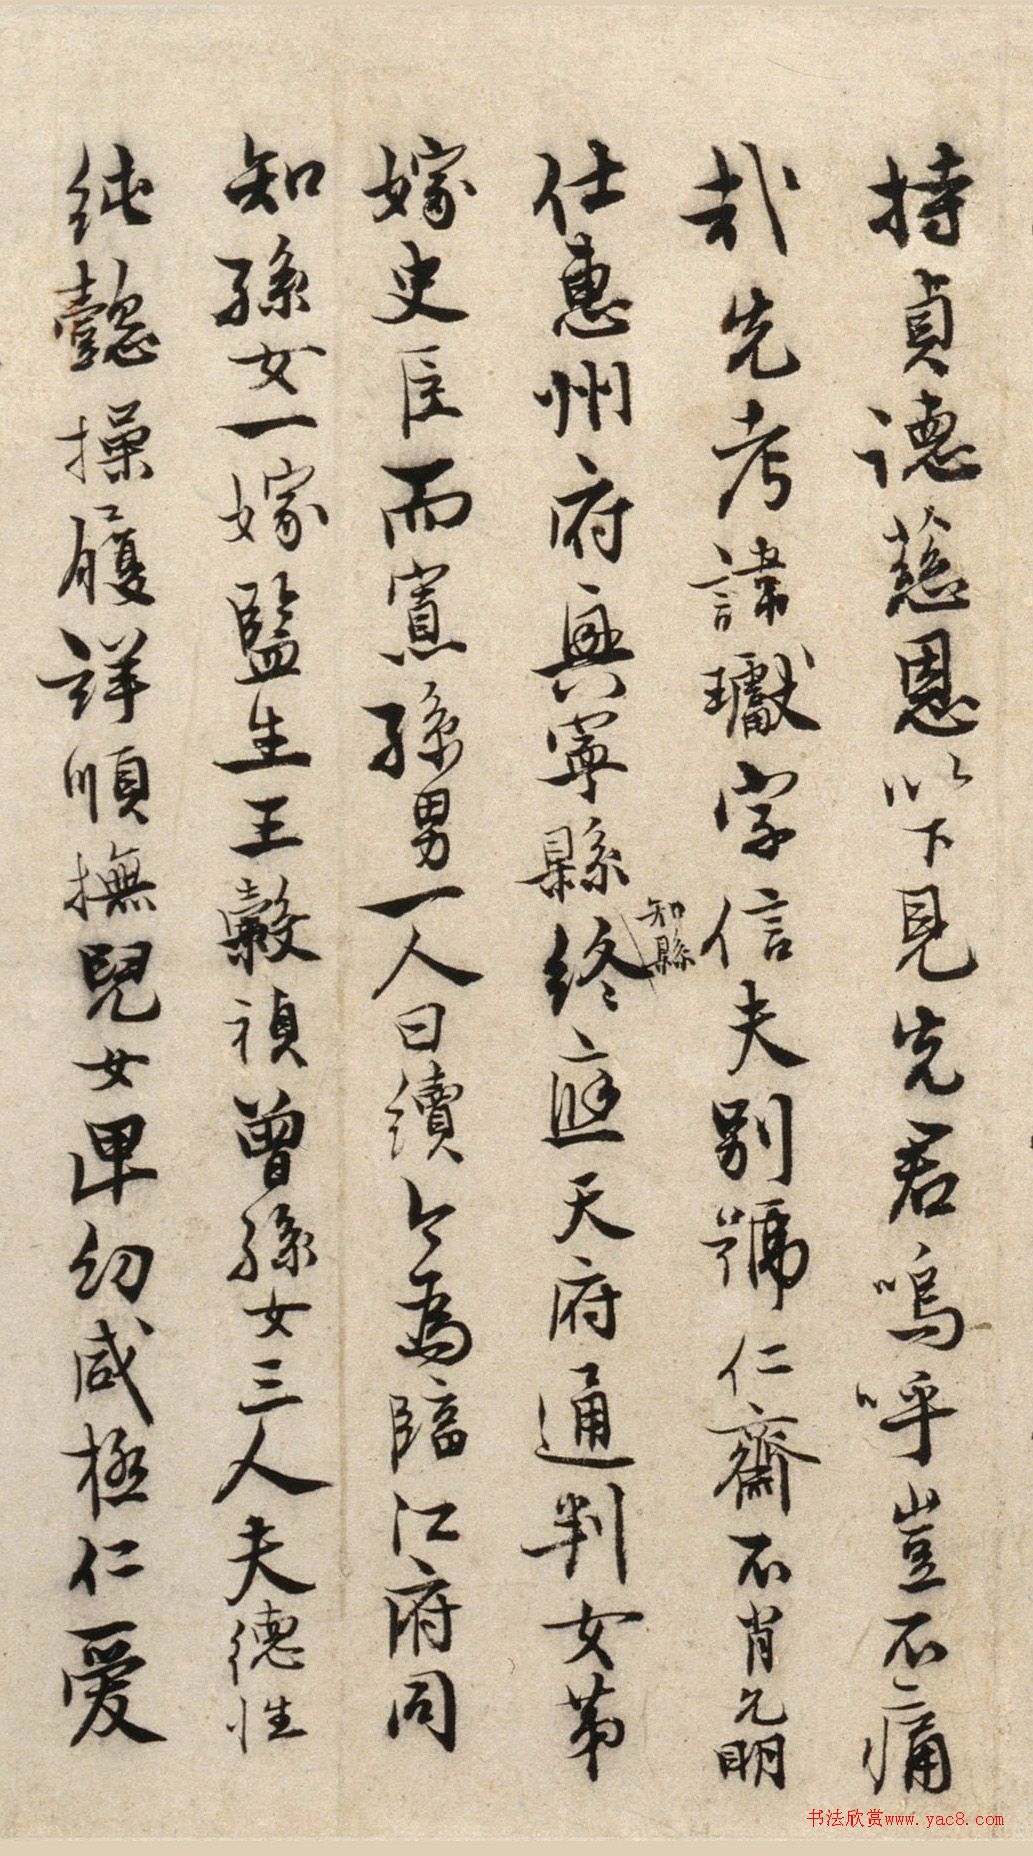 持貞德慈恩以下見先君嗚呼豈不痛
哉先考諱瓛字信夫別號仁齋不肖允明
仕惠州府興寧縣知縣終應天府通判女弟
嫁史臣而寡孫男一人曰續今為臨江府同
知孫女一嫁監生王穀禎曾孫女三人夫德性
純懿操履詳順撫兒女卑幼咸極仁愛
书法欣赏www.yac8.com